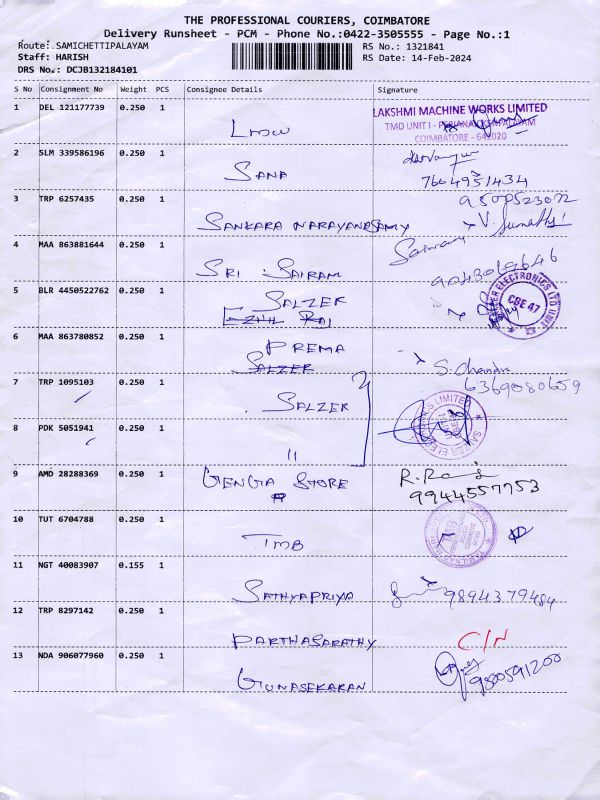 THE PROFESSIONAL COURIERS, COIMBATORE
Delivery Runsheet - PCM - Phone No.:0422-3505555 - Page No.:1
Route: SAMICHETTIPALAYAM RS No.: 1321841
Staff: HARISH RS Date: 14-Feb-2024
DRS No.: DCJB132184101
S No Consignment No Weight PCS Consignee Details Signature
1 DEL 121177739 0.250 1 LMW
LAKSHMI MACHINE WORKS LIMITED
TMD UNIT I - PERIANAICKENPALAYAM
COIMBATORE - 641020
2 SLM 339586196 0.250 1 SANA 7664951434
3 TRP 6257435 0.250 1 SANKARA NARAYANASAMY V. Sumathi
4 MAA 863881644 0.250 1 SRI SAIRAM Sairam
9043069646
5 BLR 4450522762 0.250 1 SALZER
EZHIL RAJ
CBE 47
6 MAA 863780852 0.250 1 PREMA S. Chandra
SALZER 6369080659
7 TRP 1095103 0.250 1 SALZER
8 PDK 5051941 0.250 1 "
9 AMD 28288369 0.250 1 GENGA STORE
9944557753
10 TUT 6704788 0.250 1 TMB
11 NGT 40083907 0.155 1 SATHYAPRIYA 9894379484
12 TRP 8297142 0.250 1 PARTHASARATHY C/N
13 NDA 906077960 0.250 1 GUNASEKARAN 9800591200